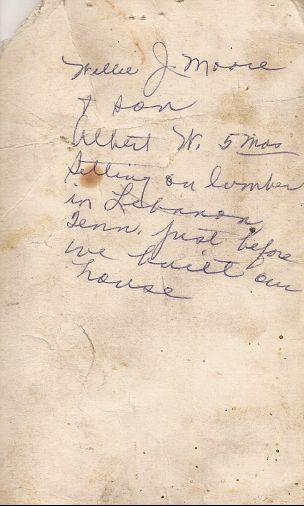 Willie J. Moore
& son
Albert W. 5 mos
Setting on lumber
in Lebanon
Tenn. just before
we built our
house